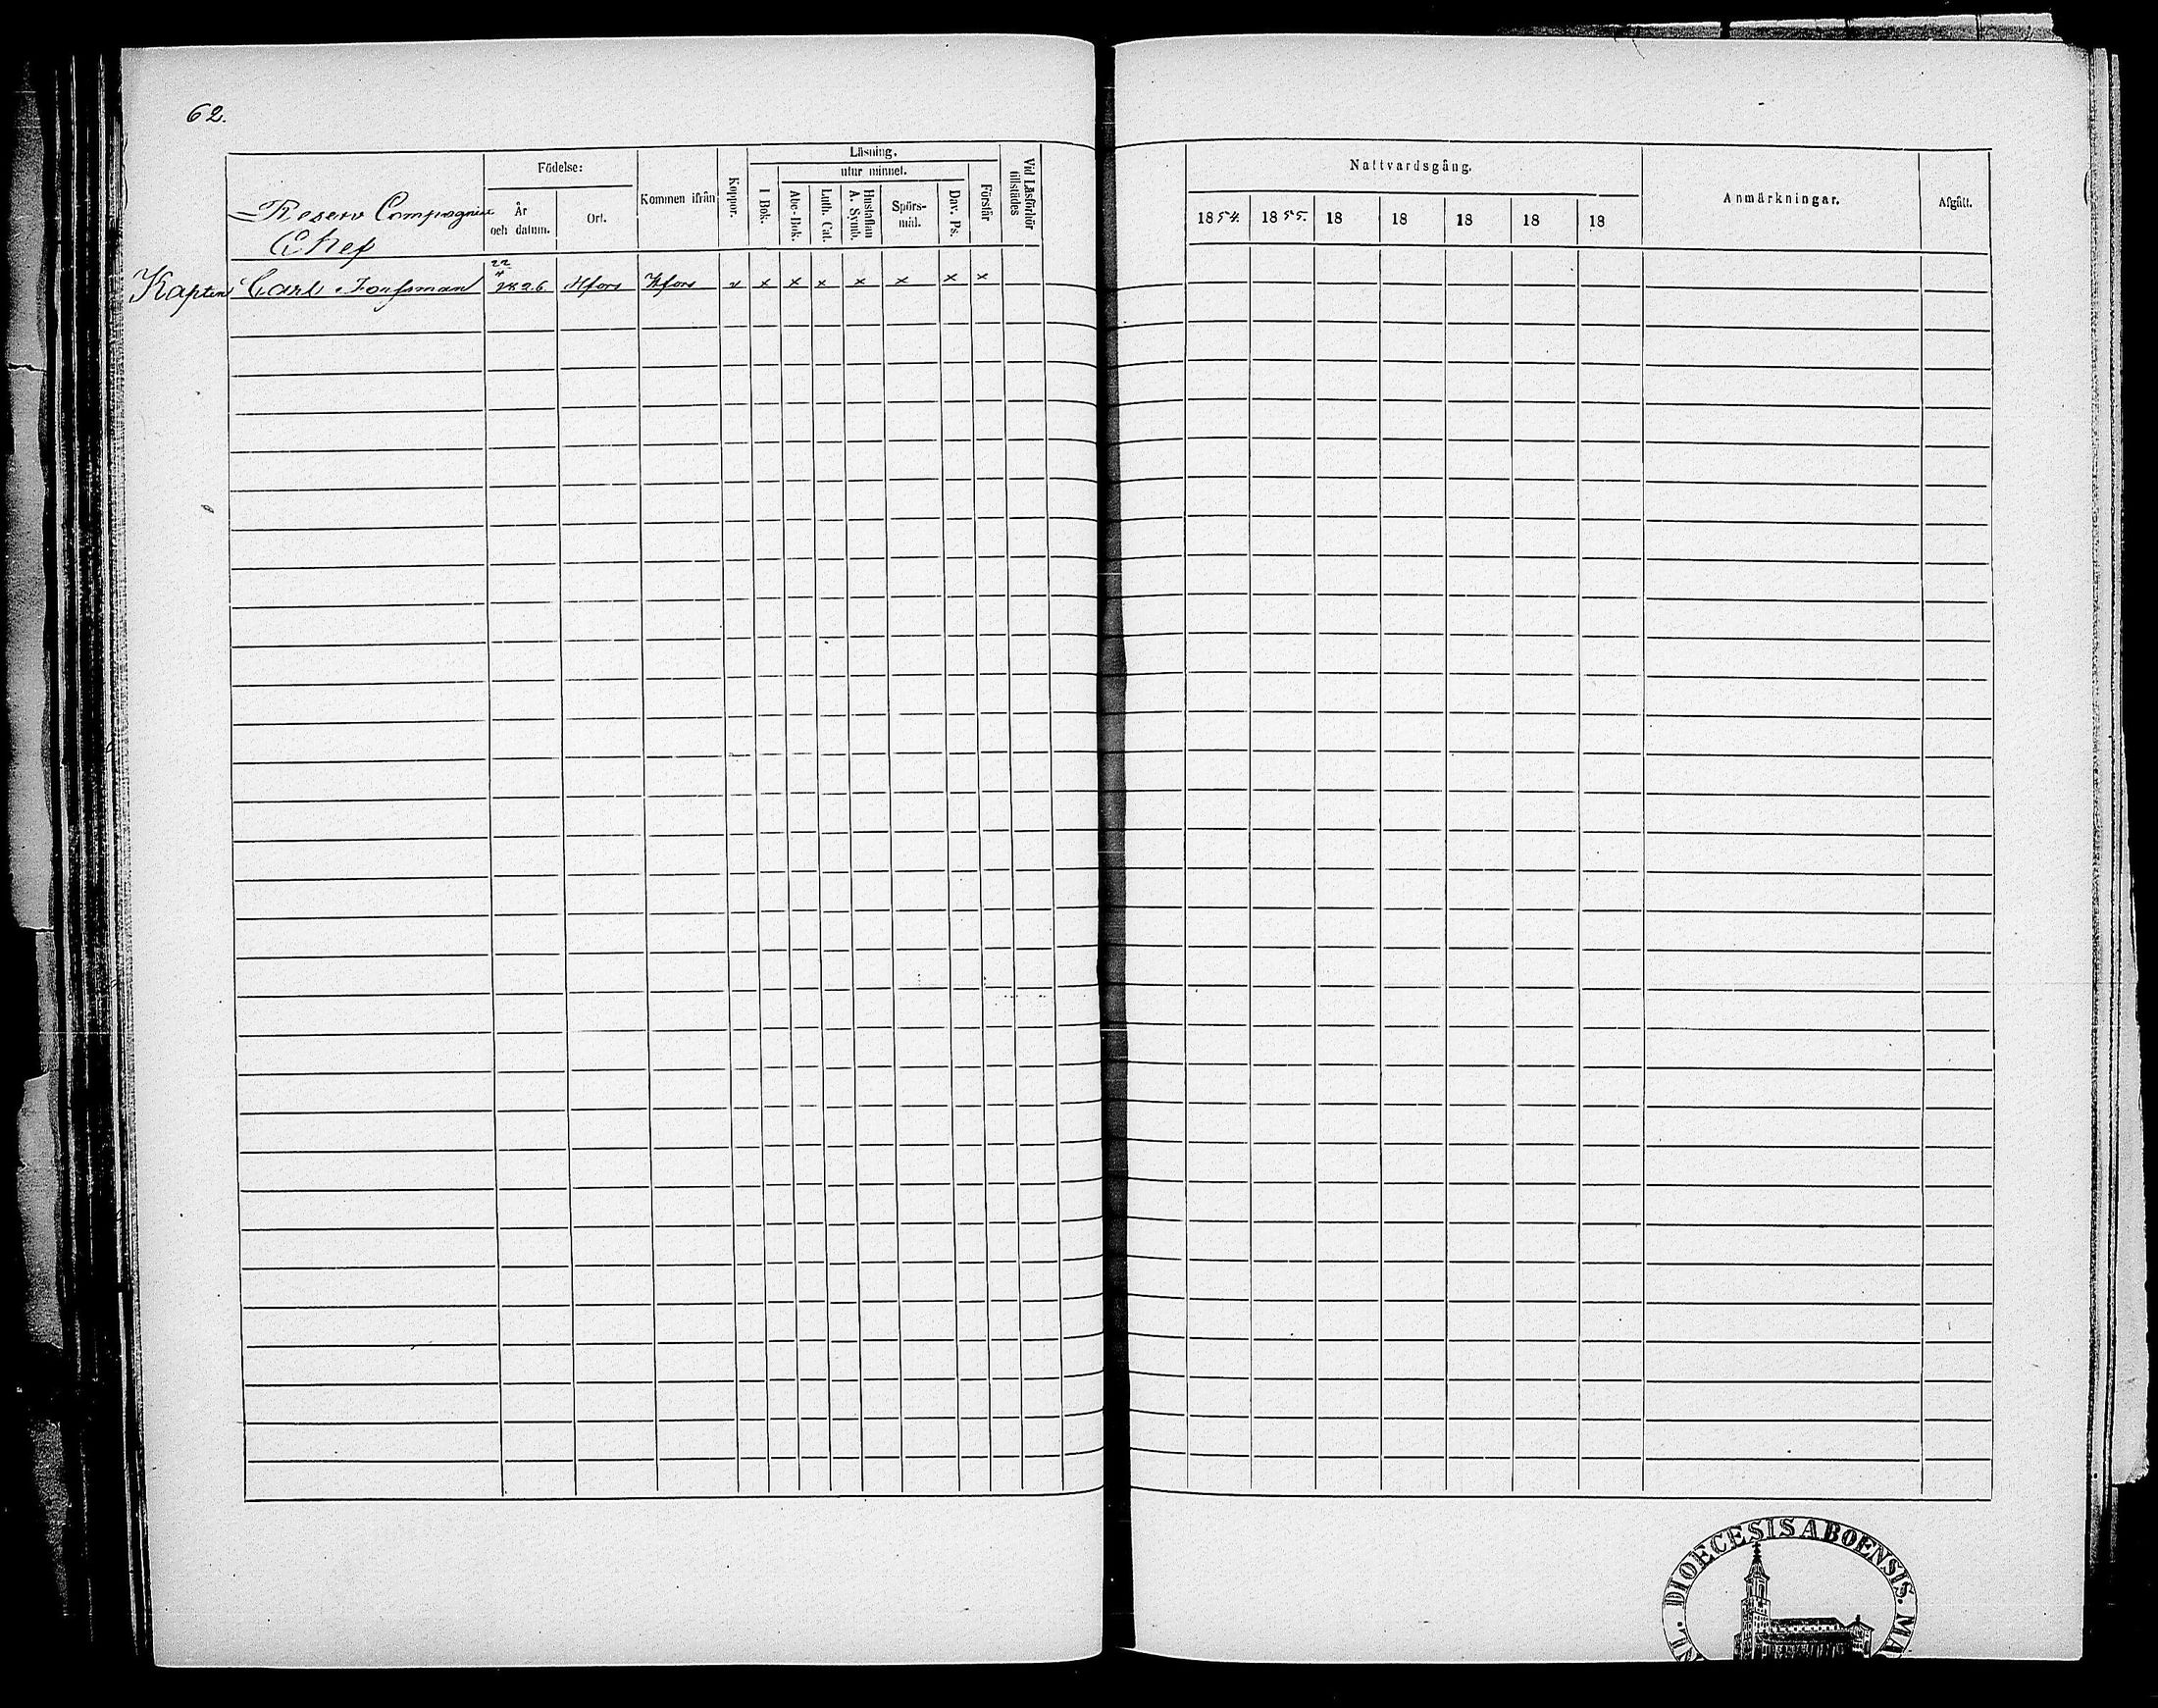 62.
Reserv Compagniets
Chef
Födelse:
År
och datum.
Ort.
Kommen ifrån
Koppor.
Läsning.
I Bok.
utur minnet.
Abc-Bok.
Luth. Cat.
Hustaflan
A. Symb.
Spörs-
mål.
Dav. Ps.
Förstår
Vid Läsförhör
tillstädes
Nattvardsgång.
1854. 1855. 18 18 18 18 18
Anmärkningar.
Afgått.
Kapten Carl 22 1826 Hfors Hfors v x x x x x x x
DIOECESIS ABOENSIS. MA